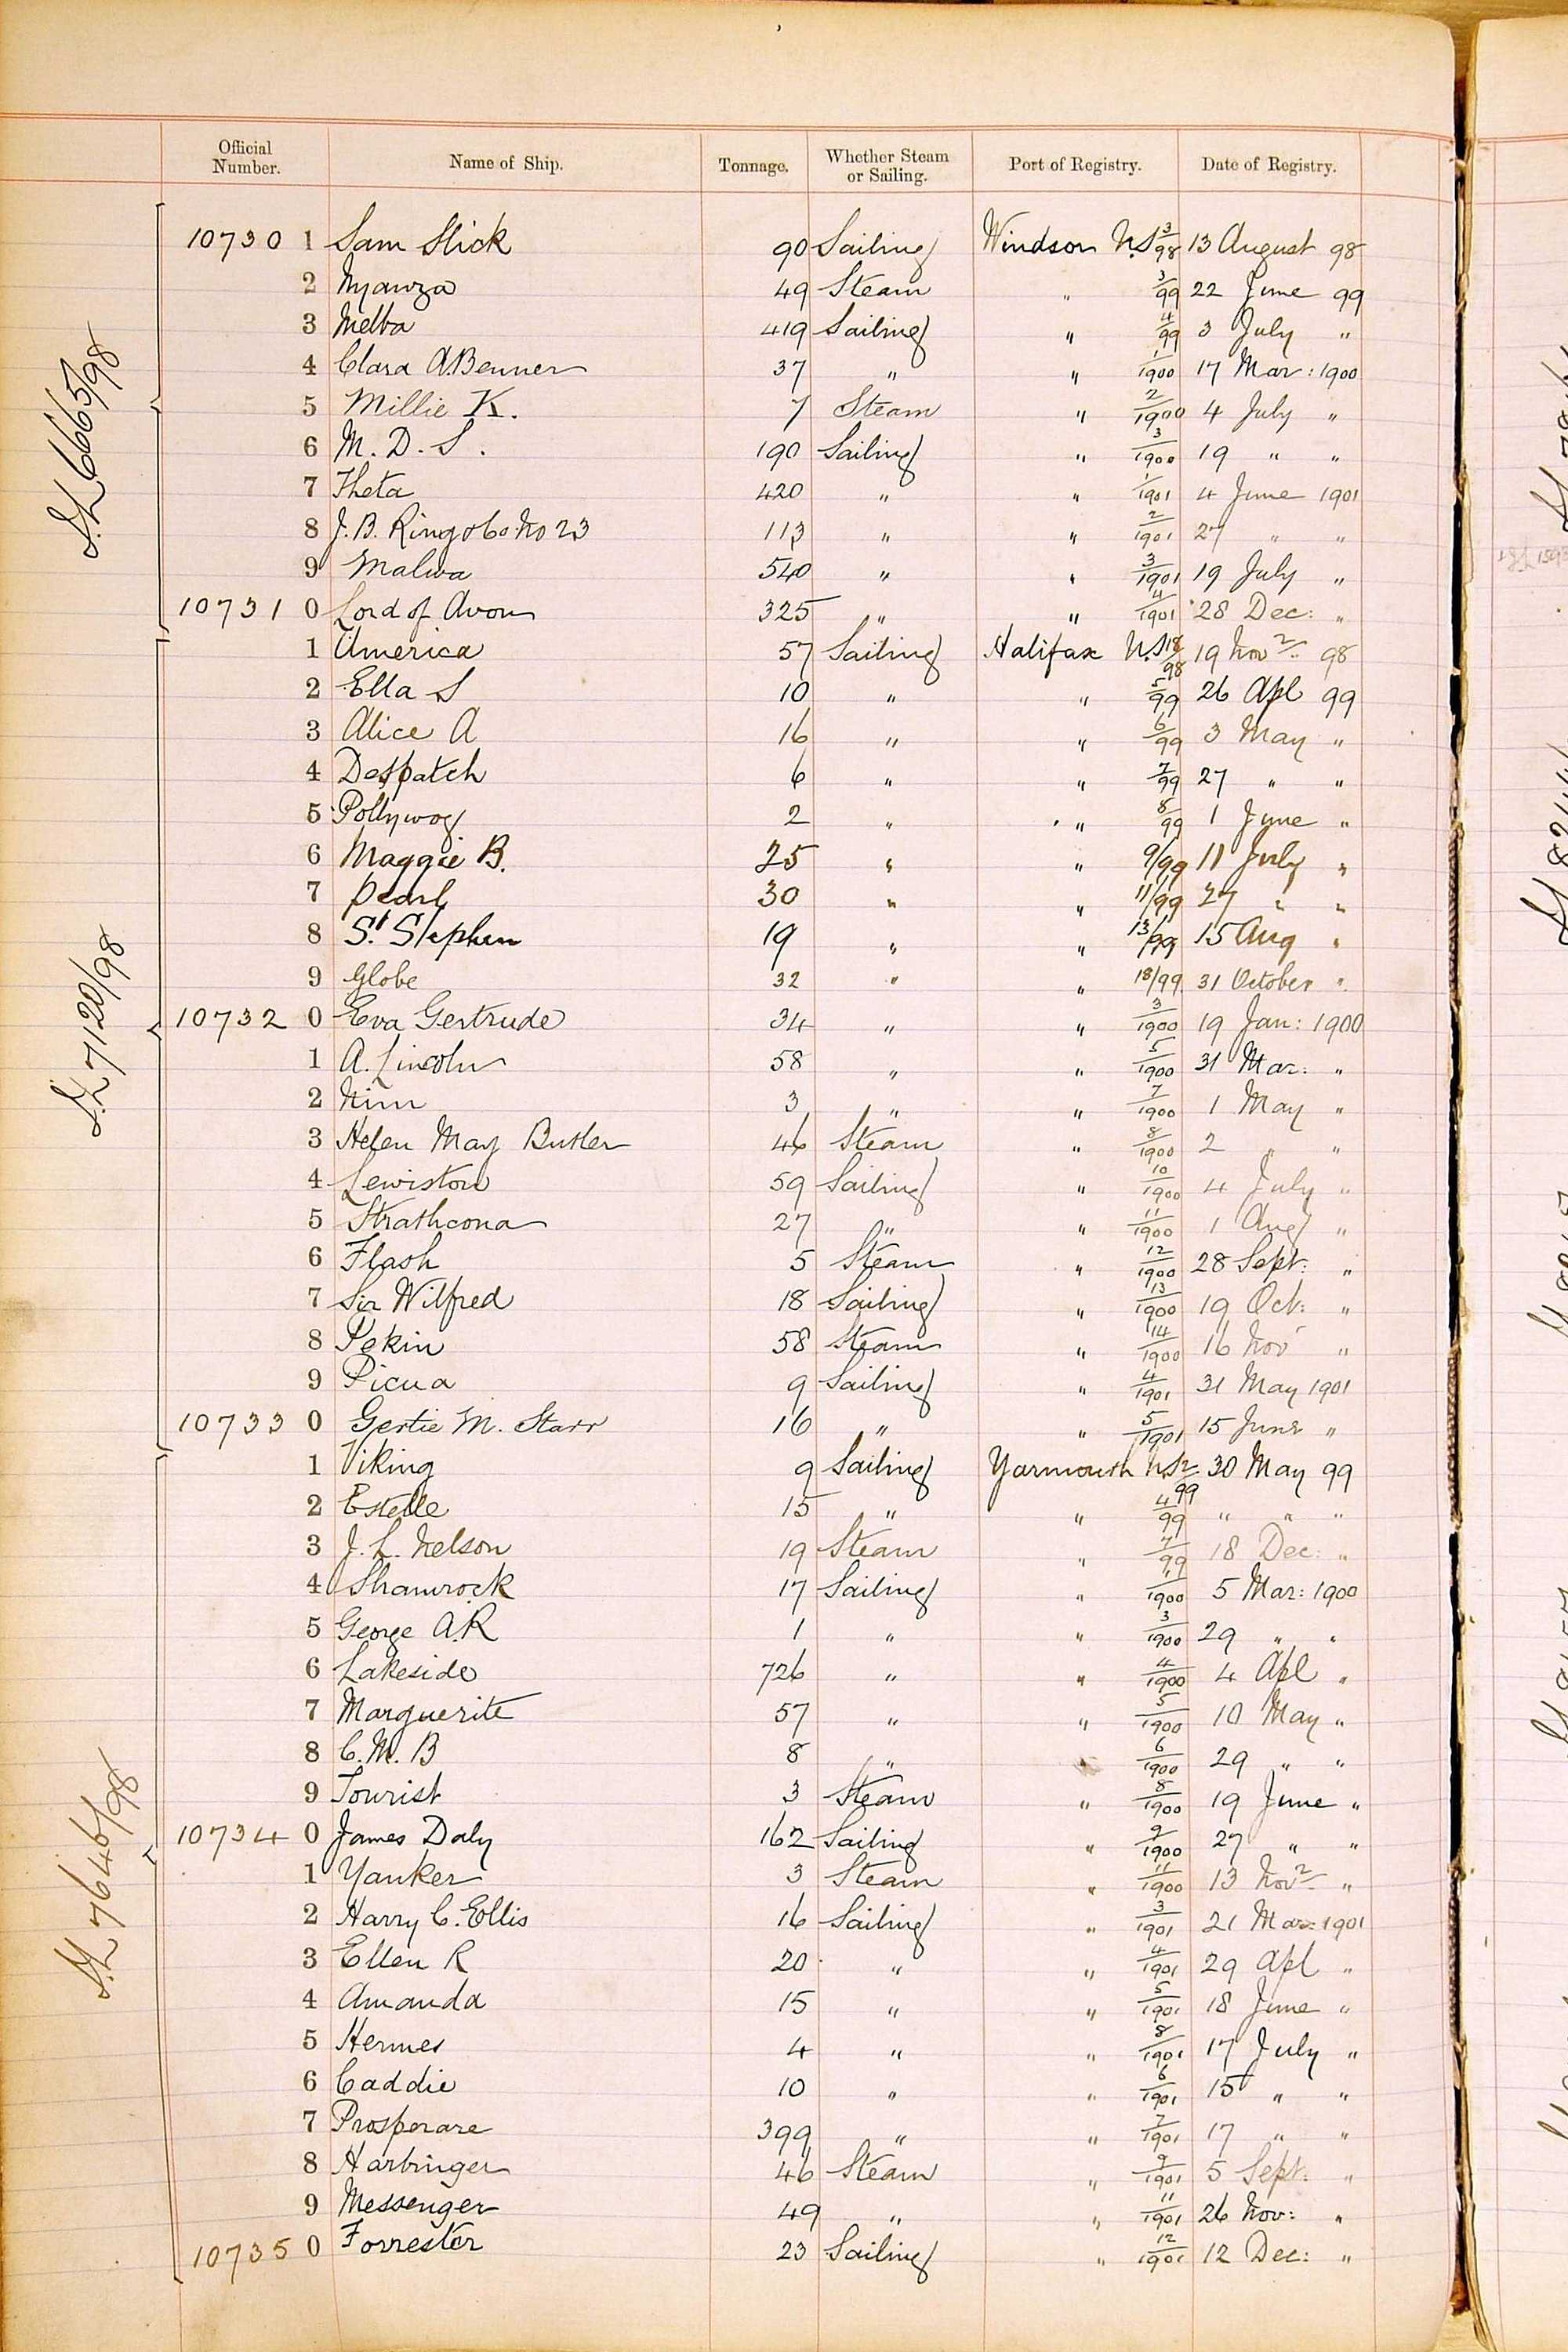 Official Number. Name of Ship. Tonnage. Whether Steam or Sailing. Port of Registry. Date of Registry.
10730 1 Sam Slick 90 Sailing Windsor N.S 3/98 13 August 98
2 Nyanza 49 Steam " 3/99 22 June 99
3 Melba 419 Sailing " 4/99 3 July "
4 Clara A. Benner 37 " " 1/1900 17 Mar: 1900
5 Millie K. 7 Steam " 2/1900 4 July "
6 M. D. S. 190 Sailing " 3/1900 19 " "
7 Theta 420 " " 1/1901 4 June 1901
8 J. B. King & Co. No 23 113 " " 2/1901 27 " "
9 Malwa 540 " " 3/1901 19 July "
10731 0 Lord of Avon 325 " " 4/1901 28 Dec: "
S.L 6665/98
1 America 57 Sailing Halifax N.S 18/98 19 Novr 98
2 Ella S 10 " " 5/99 26 Apl 99
3 Alice A 16 " " 6/99 3 May "
4 Despatch 6 " " 7/99 27 " "
5 Pollywog 2 " " 8/99 1 June "
6 Maggie B. 25 " " 9/99 11 July "
7 Pearl 30 " " 11/99 27 " "
8 St. Stephen 19 " " 13/99 15 Aug "
9 Globe 32 " " 18/99 31 October "
10732 0 Eva Gertrude 34 " " 3/1900 19 Jan: 1900
1 A. Lincoln 58 " " 5/1900 31 Mar: "
2 Nim 3 " " 7/1900 1 May "
3 Helen May Butler 46 Steam " 8/1900 2 " "
4 Lewiston 59 Sailing " 10/1900 4 July "
5 Strathcona 27 " " 11/1900 1 Aug "
6 Flash 5 Steam " 12/1900 28 Sept: "
7 Sir Wilfred 18 Sailing " 13/1900 19 Oct: "
8 Pekin 58 Steam " 14/1900 16 Nov "
9 Picua 9 Sailing " 4/1901 31 May 1901
10733 0 Gertie M. Starr 16 " " 5/1901 15 June "
S.L 7120/98
1 Viking 9 Sailing Yarmouth N.S 2/99 30 May 99
2 Estelle 15 " " 4/99 " " "
3 J. L. Nelson 19 Steam " 7/99 18 Dec: "
4 Shamrock 17 Sailing " 1/1900 5 Mar: 1900
5 George A.R 1 " " 3/1900 29 " "
6 Lakeside 726 " " 4/1900 4 Apl "
7 Marguerite 57 " " 5/1900 10 May "
8 C. M. B 8 " " 6/1900 29 " "
9 Tourist 3 Steam " 8/1900 19 June "
10734 0 James Daly 162 Sailing " 9/1900 27 " "
1 Yanker 3 Steam " 11/1900 13 Novr "
2 Harry C. Ellis 16 Sailing " 3/1901 21 Mar: 1901
3 Ellen R 20 " " 4/1901 29 Apl "
4 Amanda 15 " " 5/1901 18 June "
5 Hermes 4 " " 8/1901 17 July "
6 Caddie 10 " " 6/1901 15 " "
7 Prosperare 399 " " 7/1901 17 " "
8 Harbinger 46 Steam " 9/1901 5 Sept: "
9 Messenger 49 " " 11/1901 26 Nov: "
10735 0 Forrester 23 Sailing " 12/1901 12 Dec: "
S.L 7646/98